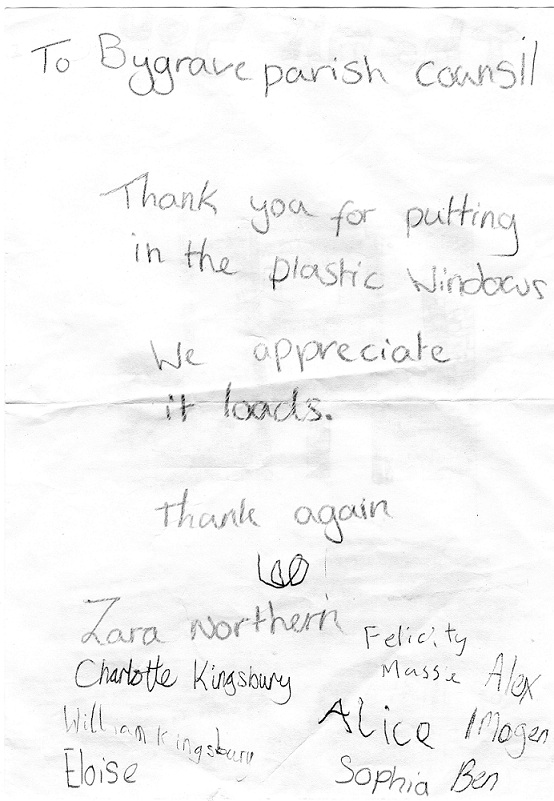 To Bygrave parish counsil
Thank you for putting
in the plastic windows
We appreciate
it loads.
Thank again
Zara Northern
Felicity
Massie Alex
Charlotte Kingsbury
Alice Imogen
William Kingsbury
Eloise
Sophia Ben